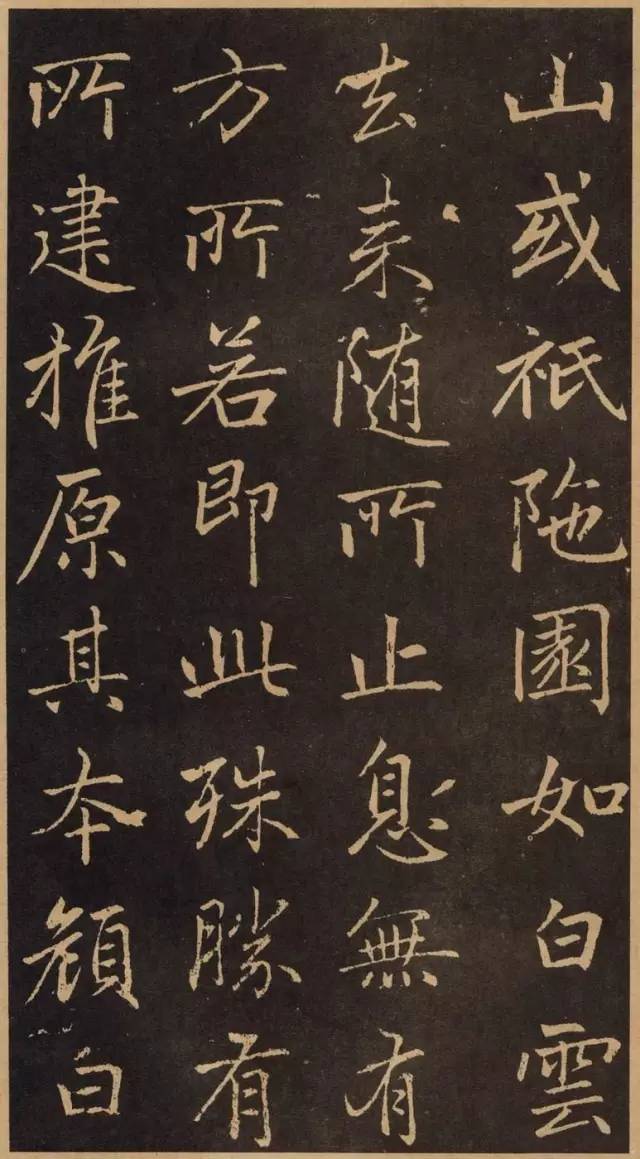 山或祇陁園如白雲
去来随所止息無有
方所若即此殊勝有
所建推原其本願白